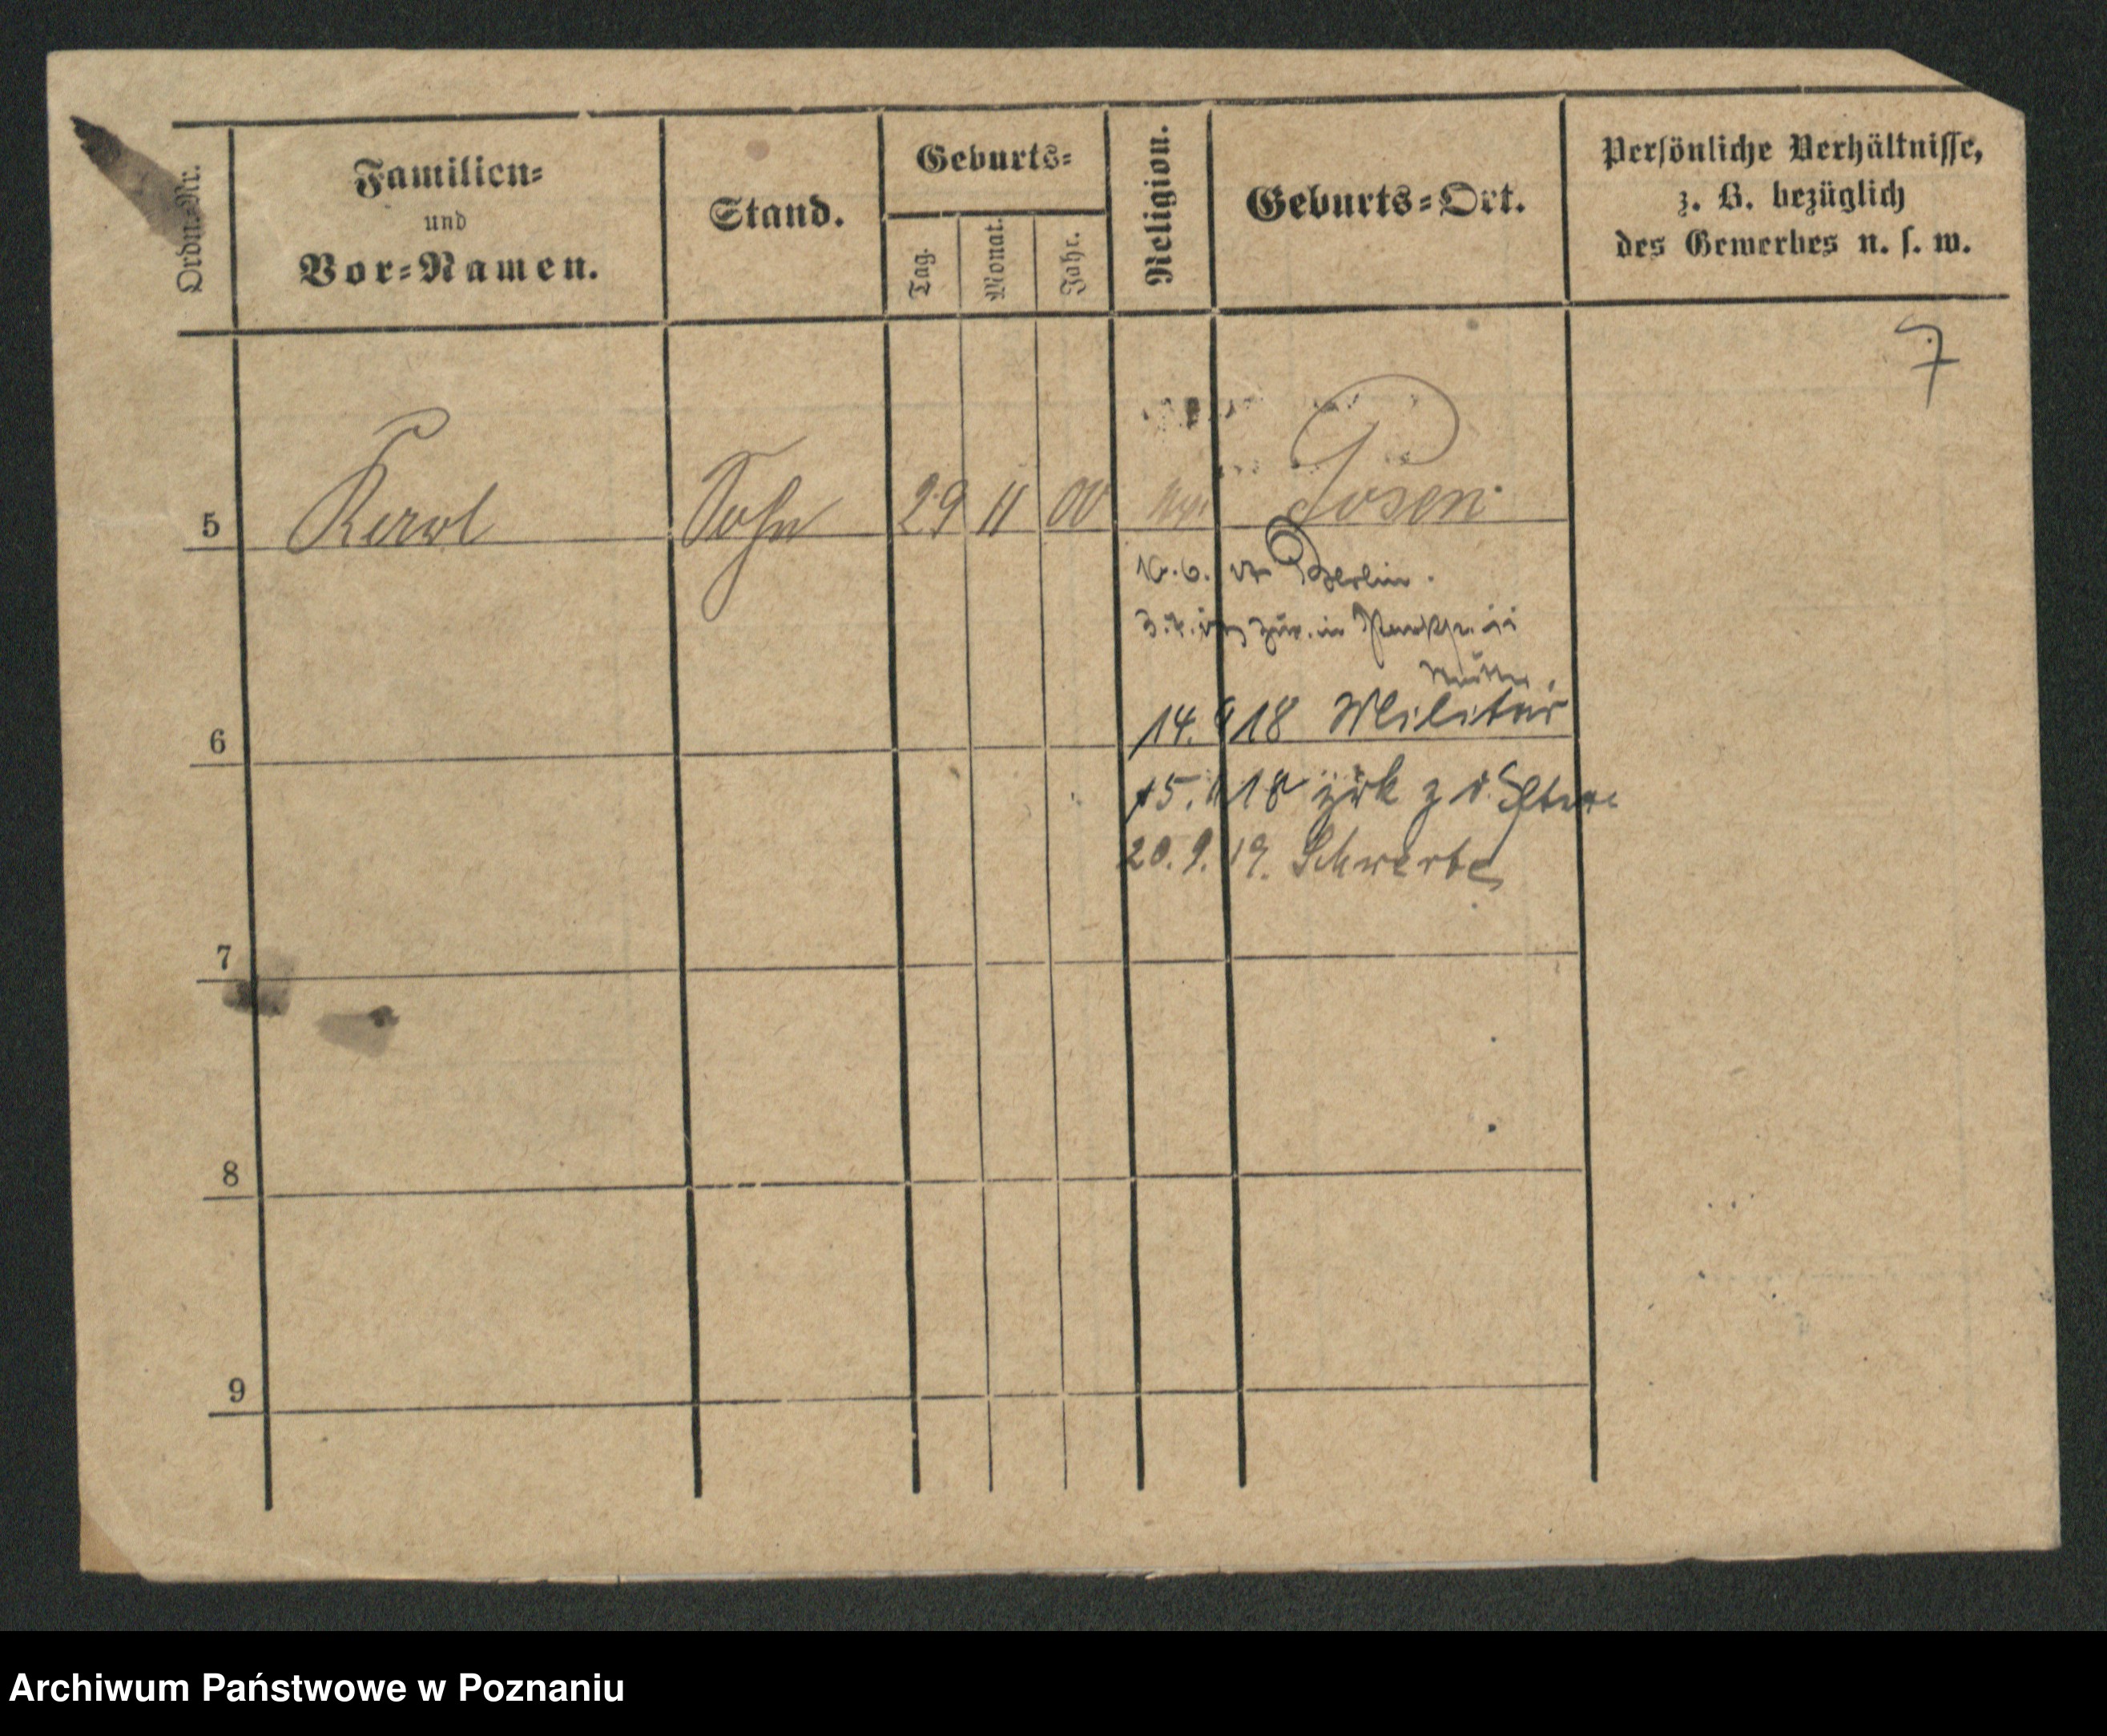 Ordn.-Nr.
Familien-
und
Vor-Namen.
Stand.
Geburts-
Tag.
Monat.
Jahr.
Religion.
Geburts-Ort.
Persönliche Verhältnisse,
z. B. bezüglich
des Gewerbes u. s. w.
7
5 Karol Sohn 29 11 00 Posen
Berlin.
14. 9 18 Militär
6
15. 11 18 zrk z d. Eltern
20. 9. 19. Schwerte
7
8
9
Archiwum Państwowe w Poznaniu